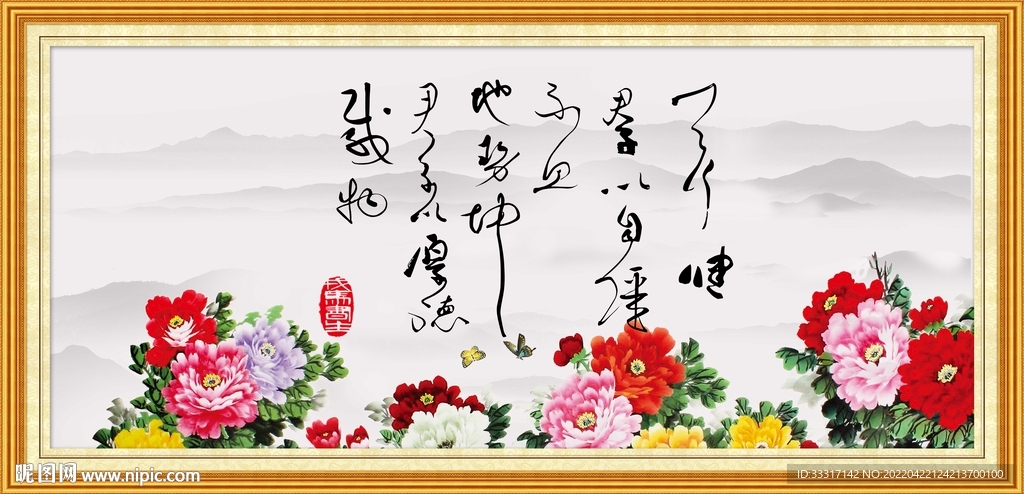 天行健
君子以自强
不息
地势坤
君子以厚德
载物
昵图网 www.nipic.com
ID:33317142 NO:20220422124213700100